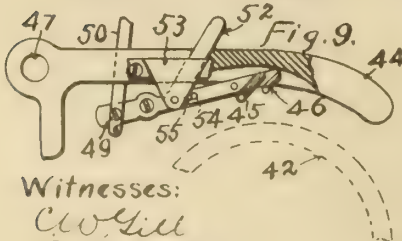 47
50
53
52
Fig. 9.
44
49
55
54
45
46
42
Witnesses:
C.W. Gill